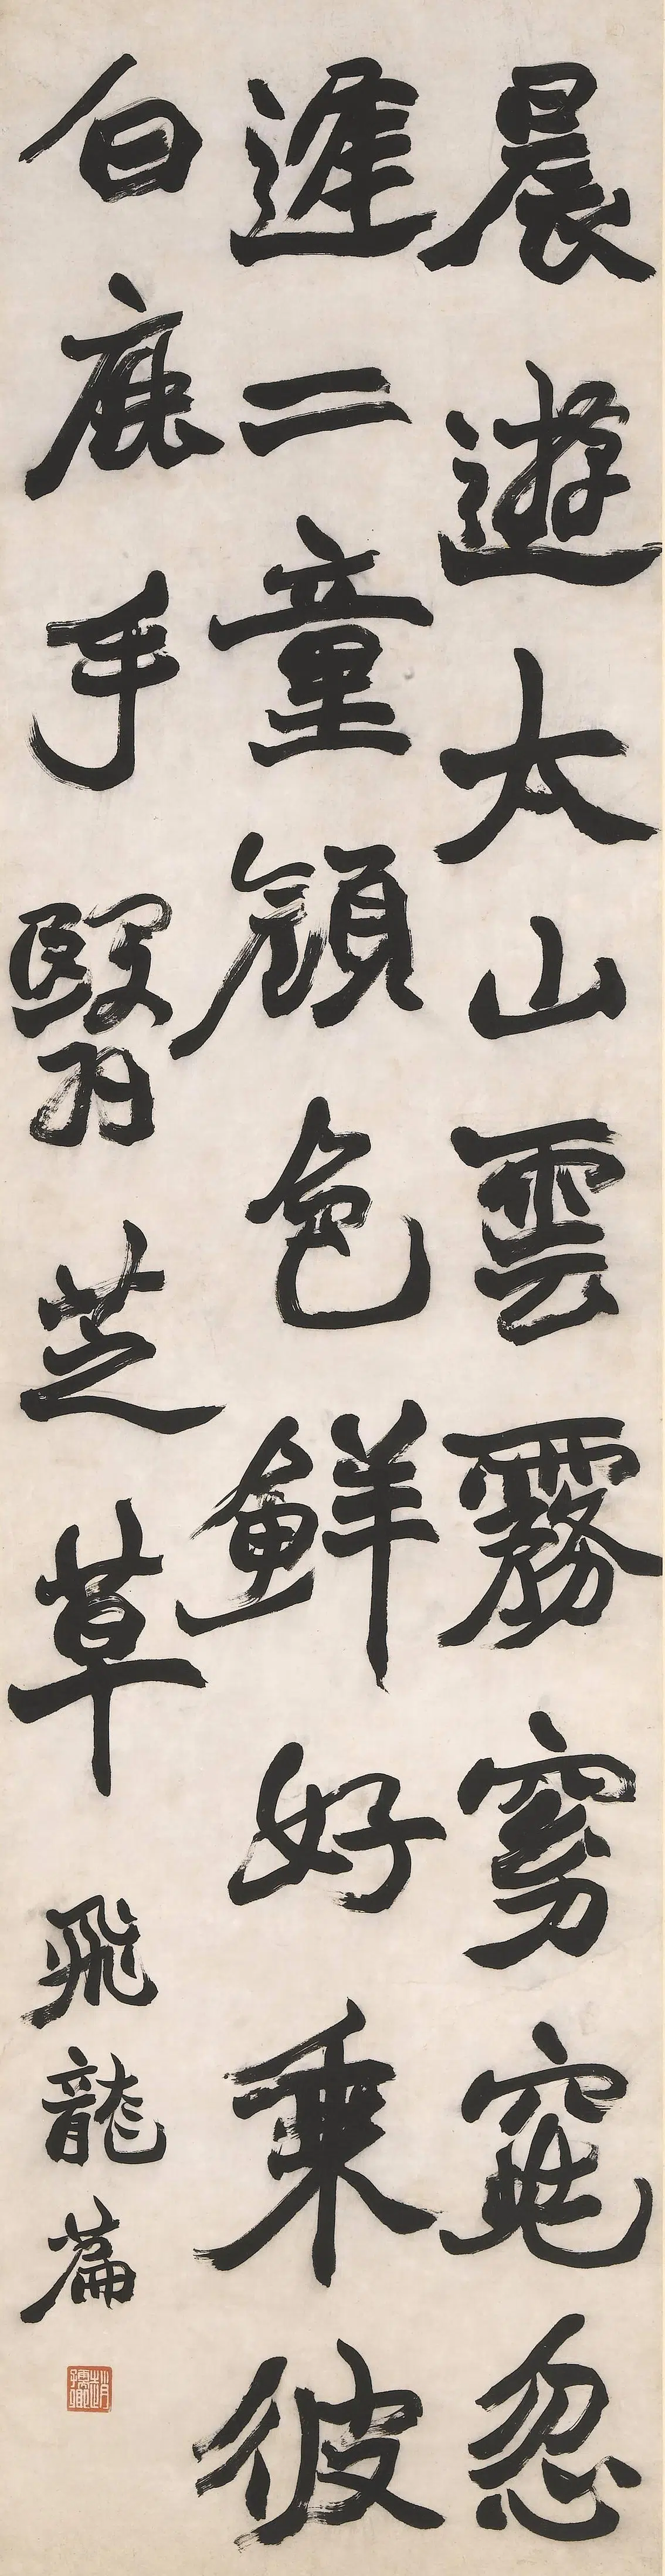 晨遊太山雲霧窈窕忽
逢二童顏色鮮好乘彼
白鹿手翳芝草
飛龍篇